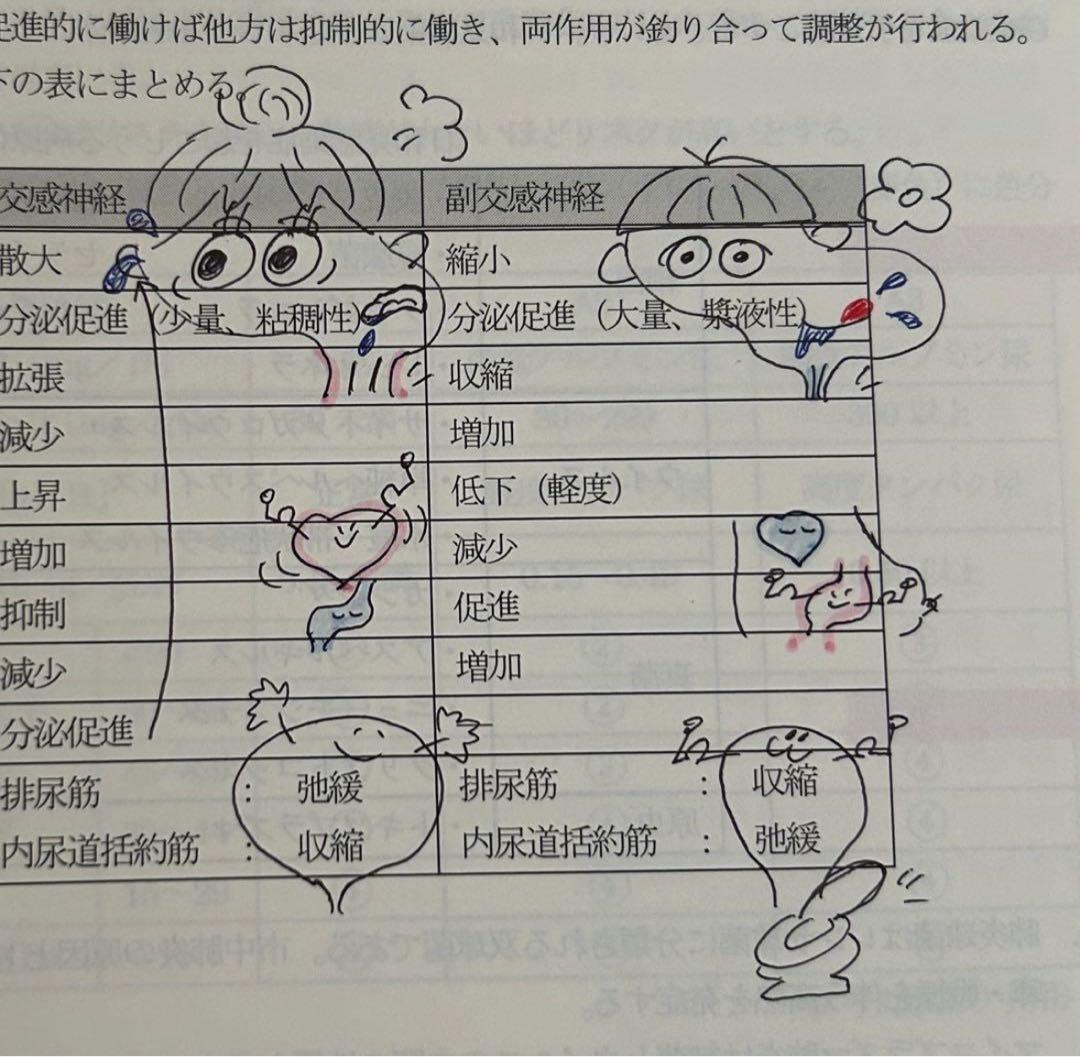 促進的に働けば他方は抑制的に働き、両作用が釣り合って調整が行われる。
下の表にまとめる。
交感神経 副交感神経
散大 縮小
分泌促進（少量、粘稠性） 分泌促進（大量、漿液性）
拡張 収縮
減少 増加
上昇 低下（軽度）
増加 減少
抑制 促進
減少 増加
分泌促進
排尿筋 ： 弛緩 排尿筋 ： 収縮
内尿道括約筋 ： 収縮 内尿道括約筋 ： 弛緩